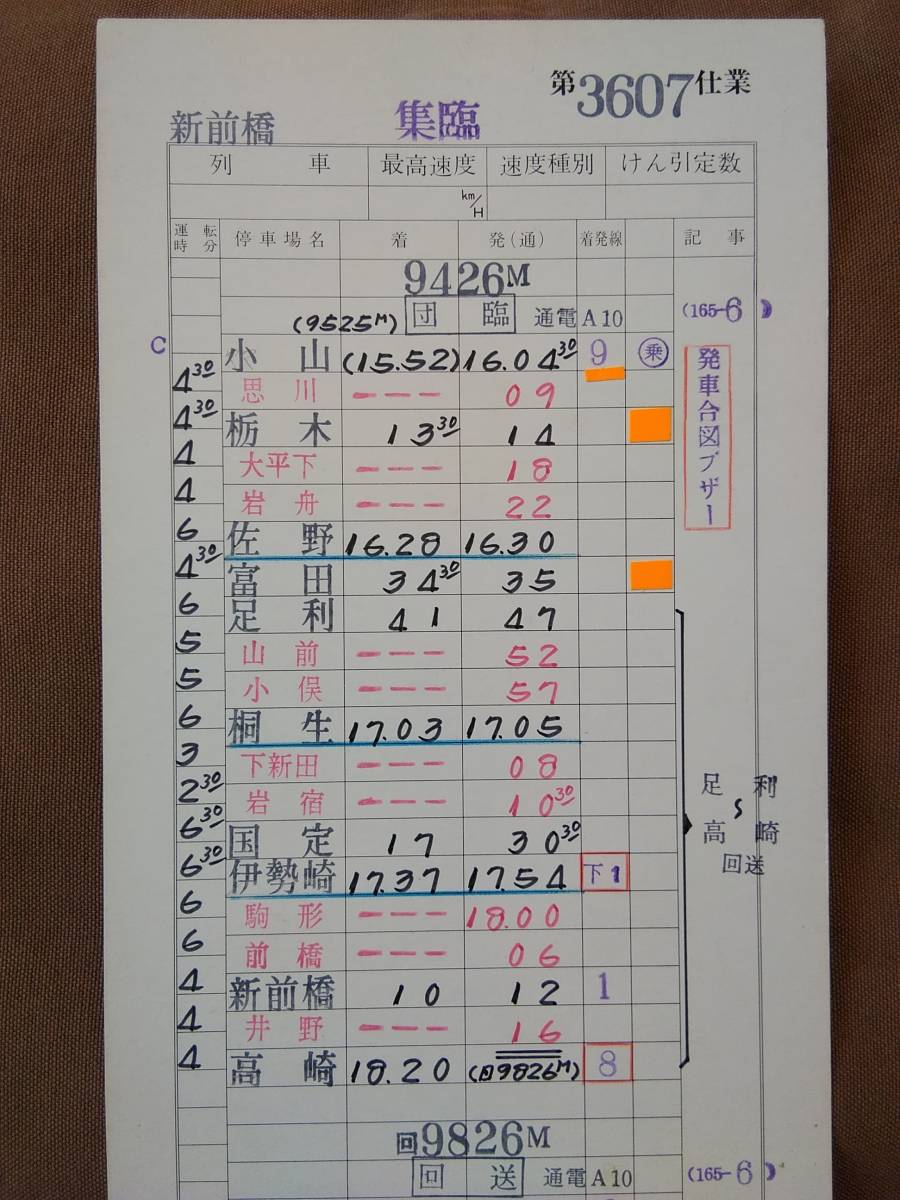 第3607仕業
新前橋 集臨
列 車 最高速度 速度種別 けん引定数
km/H
運転時分 停車場名 着 発(通) 着発線 記 事
9426M
(9525M) 団 臨 通電 A10 (165-6)
C 小 山 (15.52) 16.04 30 9 乗
発車合図ブザー
4 30 思 川 --- 09
4 30 栃 木 13 30 14
4 大平下 --- 18
4 岩 舟 --- 22
6 佐 野 16.28 16.30
4 30 富 田 34 30 35
6 足 利 41 47
5 山 前 --- 52
5 小 俣 --- 57
6 桐 生 17.03 17.05
3 下新田 --- 08
2 30 岩 宿 --- 10 30
6 30 国 定 17 30 30
6 30 伊勢崎 17.37 17.54 下1
6 駒 形 --- 18.00
6 前 橋 --- 06
4 新前橋 10 12 1
4 井 野 --- 16
4 高 崎 18.20 (回9826M) 8
足 利
〜
高 崎
回送
回9826M
回 送 通電 A10 (165-6)